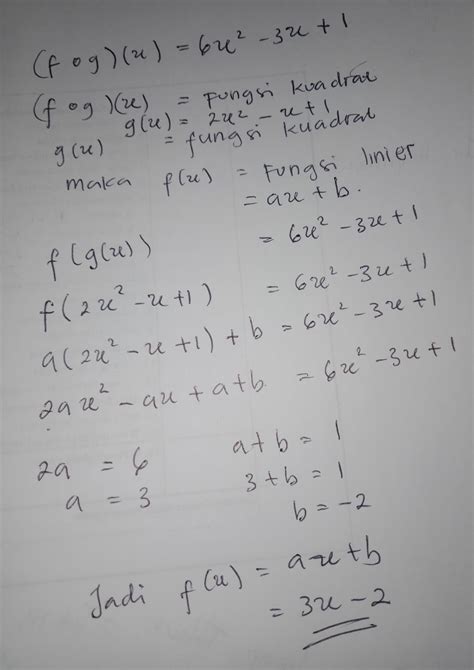 (f o g)(x) = 6x² - 3x + 1
(f o g)(x) = Fungsi kuadrat
g(x) = 2x² - x + 1
g(x) = fungsi kuadrat
maka f(x) = Fungsi linier
= ax + b.
f(g(x)) = 6x² - 3x + 1
f(2x² - x + 1) = 6x² - 3x + 1
a(2x² - x + 1) + b = 6x² - 3x + 1
2ax² - ax + a + b = 6x² - 3x + 1
2a = 6 a + b = 1
a = 3 3 + b = 1
b = -2
Jadi f(x) = ax + b
= 3x - 2